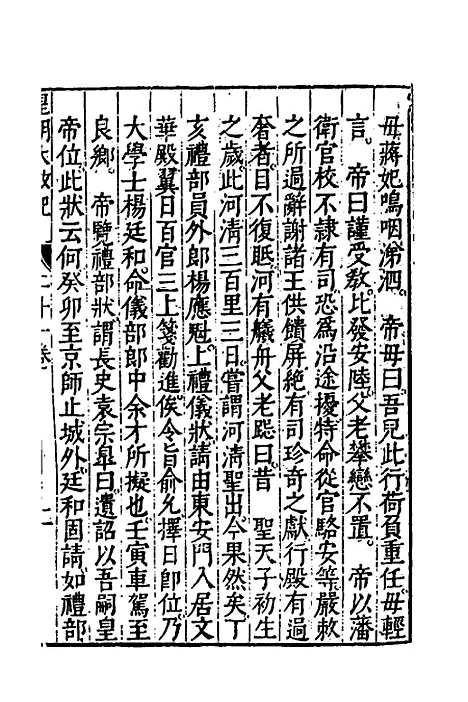 毋蔣妃嗚咽涕泗　帝毋曰吾兒此行荷負重任毋輕
言　帝曰謹受教比發安陸父老攀戀不置　帝以藩
衛官校不隷有司恐爲沿途擾特命從官駱安等嚴敕
之所過辭謝諸王供饋屏絶有司珍奇之獻行殿有過
奢者目不復眂河有艤舟父老跽曰昔　聖天子初生
之歲此河清三百里三日嘗謂河清聖出今果然矣丁
亥禮部員外郎楊應魁上禮儀狀請由東安門入居文
華殿翼日百官三上箋勸進俟令旨俞允擇日卽位乃
大學士楊廷和命儀部郎中余才所擬也壬寅車駕至
良鄉　帝覽禮部狀謂長史袁宗臯曰遺詔以吾嗣皇
帝位此狀云何癸卯至京師止城外廷和固請如禮部
皇明大政記　二十一卷